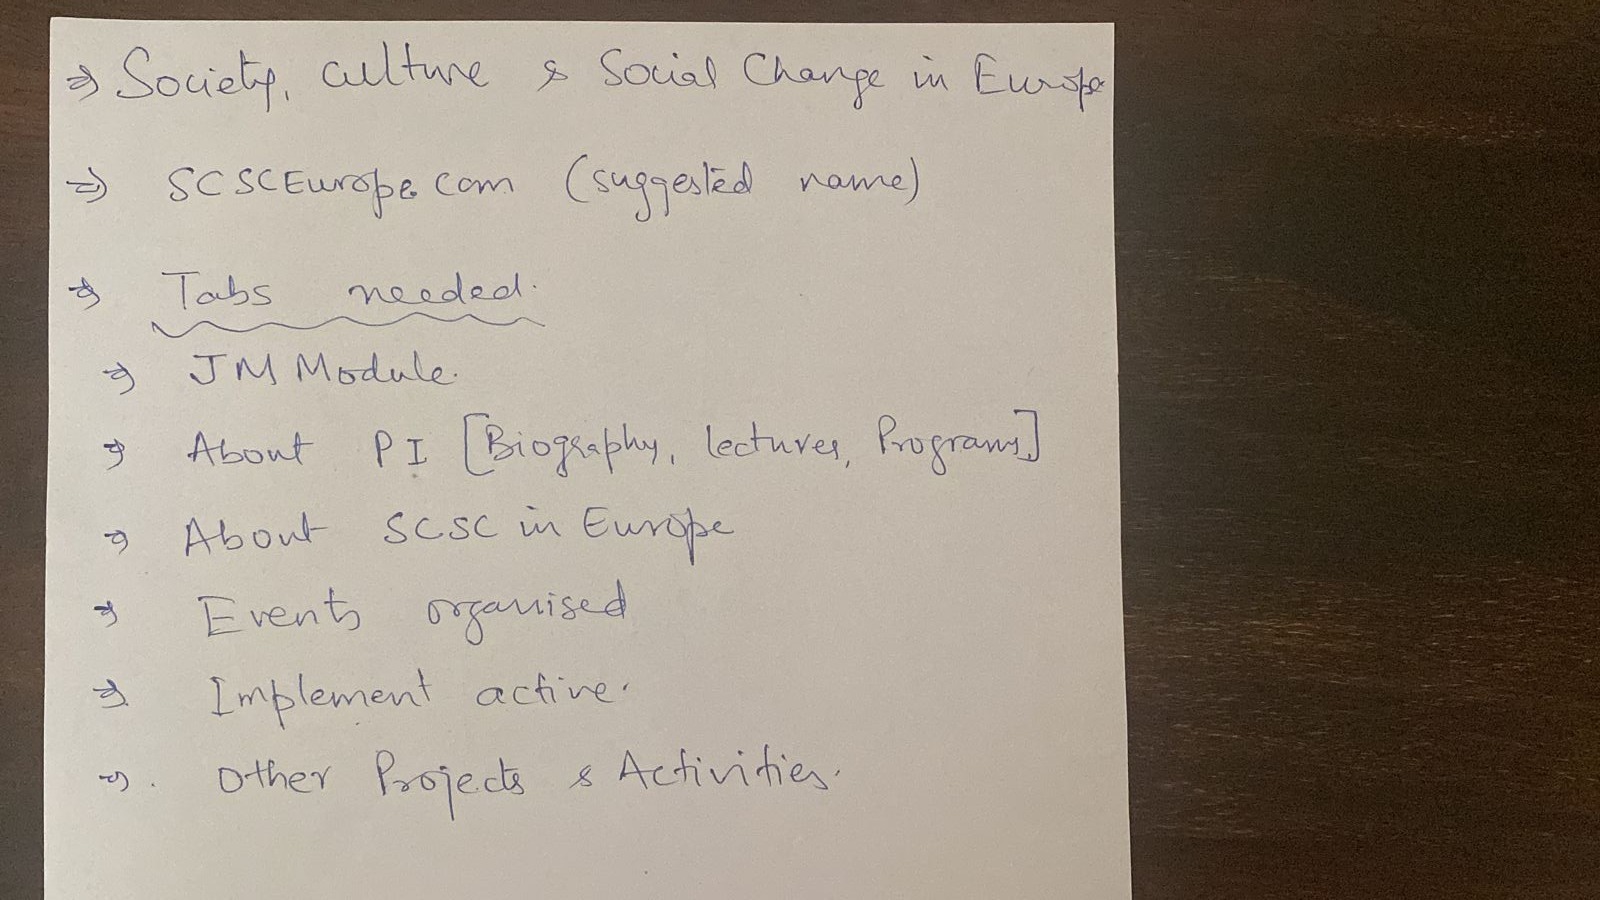 ⇒ Society, culture & Social Change in Europe
⇒ SCSCEurope.com (suggested name)
⇒ Tabs needed.
⇒ JM Module.
⇒ About PI [Biography, lectures, Programs]
⇒ About SCSC in Europe
⇒ Events organised
⇒ Implement active.
⇒ Other Projects & Activities.